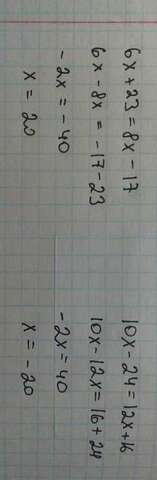 6x + 23 = 8x - 17
6x - 8x = -17 - 23
-2x = -40
x = 20
10x - 24 = 12x + 16
10x - 12x = 16 + 24
-2x = 40
x = -20